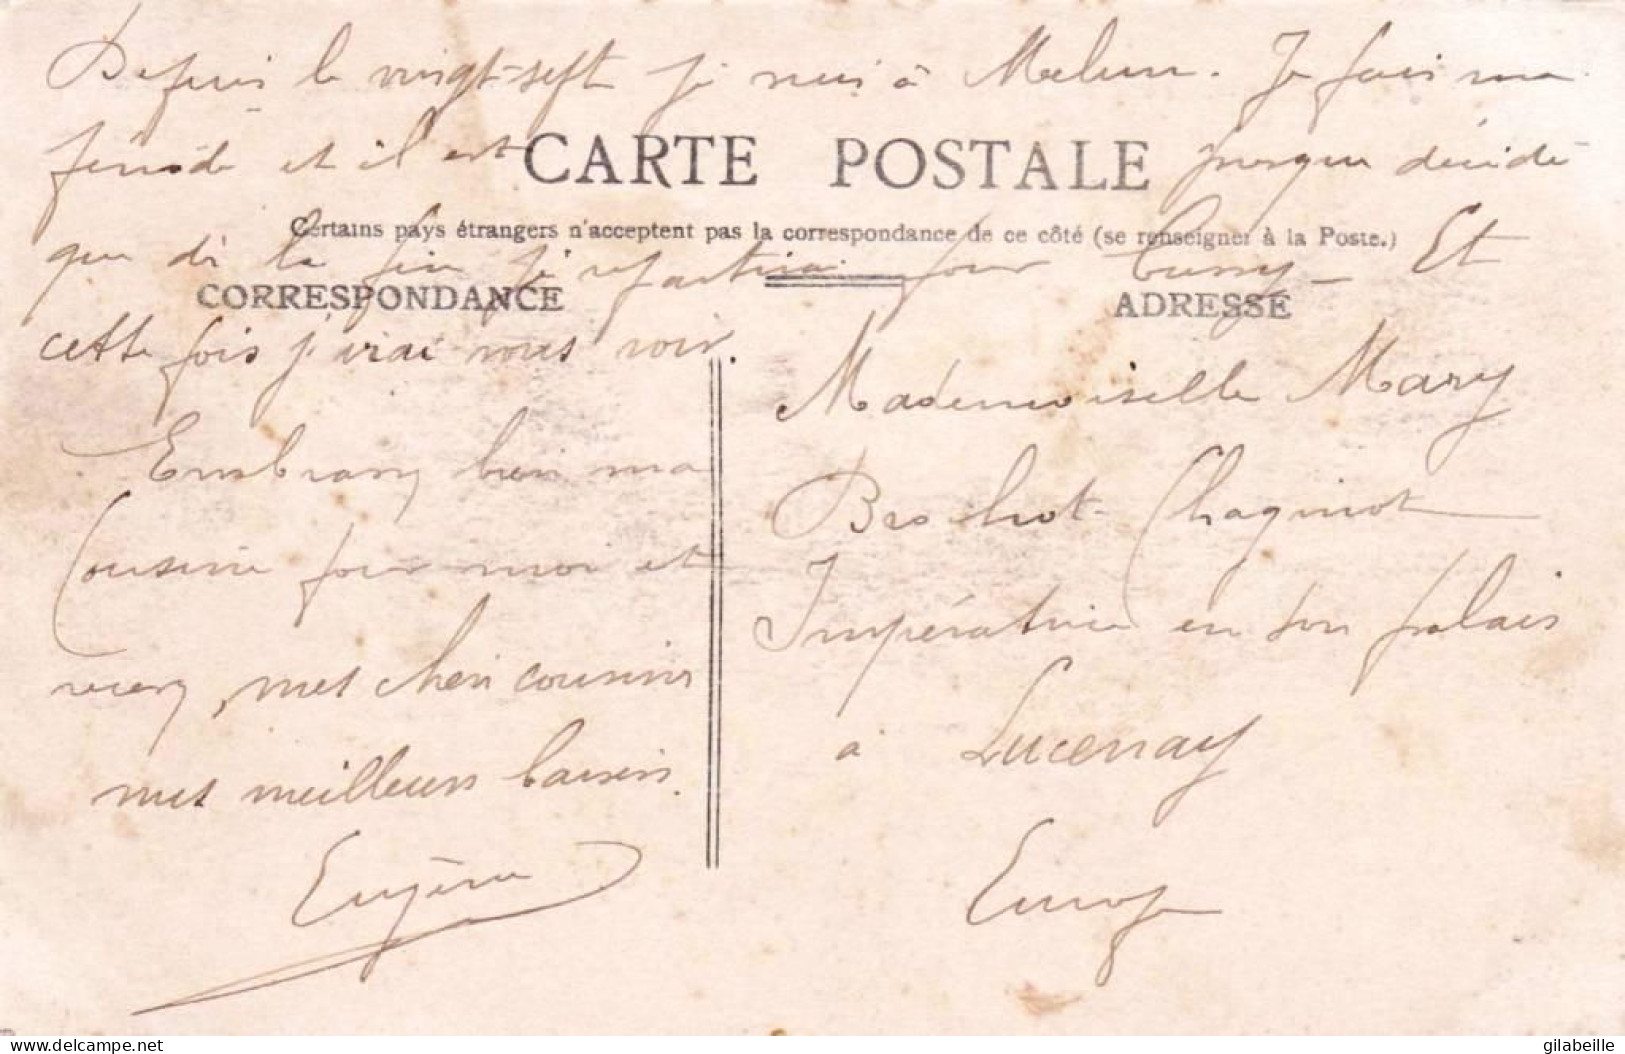 Depuis le vingt-sept je suis à Melun. Je fais ma
période et il est presque décidé
CARTE POSTALE
Certains pays étrangers n'acceptent pas la correspondance de ce côté (se renseigner à la Poste.)
que dè la fin je repartirai pour Cussy - Et
CORRESPONDANCE
cette fois j'irai vous voir.
Embrassez bien ma
Cousine pour moi et
recevez, mes chers cousins
mes meilleurs baisers.
Eugène
ADRESSE
Mademoiselle Mary
Brochot Chaginot
Impératrice en son palais
à Lucenay
Europe
delcampe.net
gilabeille